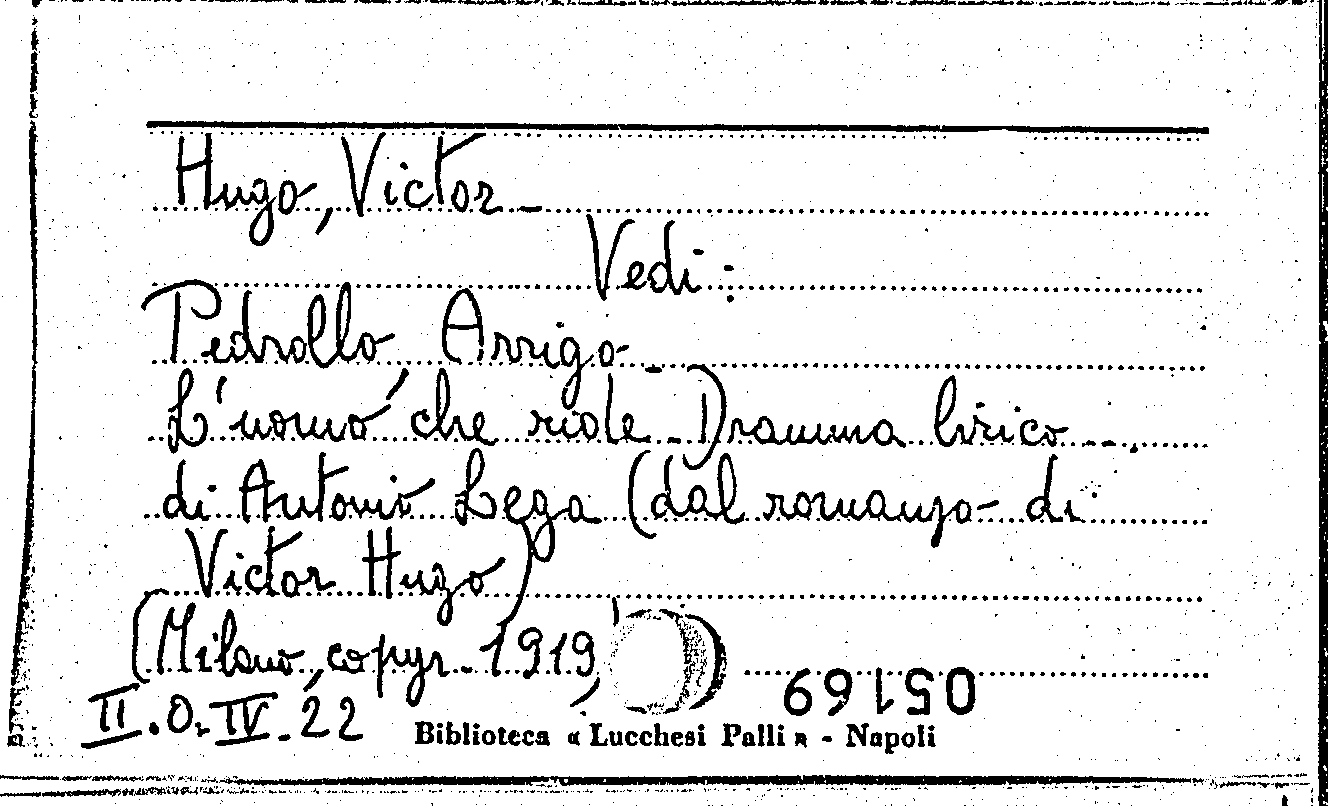 Hugo, Victor -
Vedi:
Pedrollo, Arrigo -
L'uomo che ride - Dramma lirico - .
di Antonio Lega (dal romanzo di
Victor Hugo)
(Milano, copyr. 1919)
05169
II.O.IV.22
Biblioteca « Lucchesi Palli » - Napoli